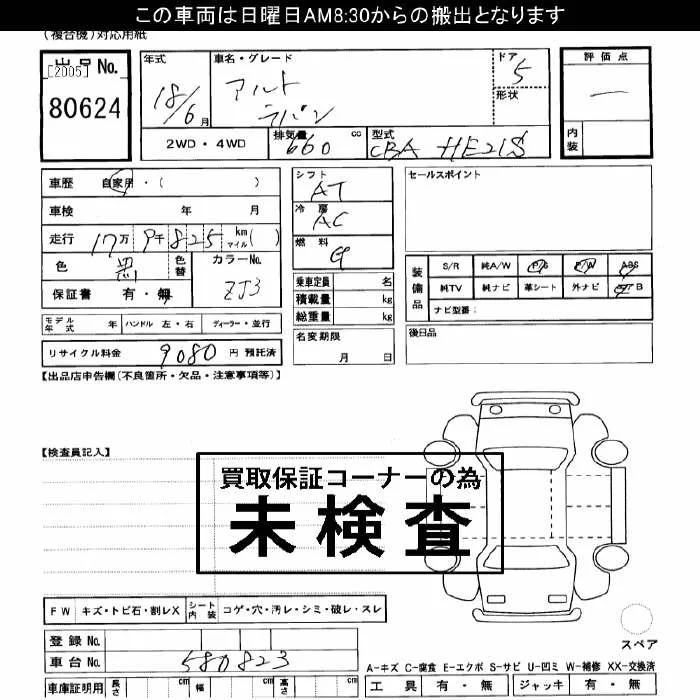 この車両は日曜日AM8:30からの搬出となります
(複合機)対応用紙
出品No.
[2005]
80624
年式
18/6月
車名・グレード
アルト
ラパン
ドア
5
形状
評価点
内装
2WD・4WD
排気量 660 cc
型式 CBA HE21S
車歴 自家用・( )
車検 年 月
走行 17万 9千 825 km マイル( )
色 黒 色替
カラーNo.
ZJ3
保証書 有・無
モデル年式 年 ハンドル 左・右 ディーラー・並行
リサイクル料金 9080 円 預託済
シフト
AT
冷房
AC
燃料
G
乗車定員 名
積載量 kg
総重量 kg
名変期限
月 日
セールスポイント
装備品
S/R 純A/W P/S P/W ABS
純TV 純ナビ 革シート 外ナビ
ナビ型番:
後日品
【出品店申告欄(不良箇所・欠品・注意事項等)】
【検査員記入】
買取保証コーナーの為
未検査
FW キズ・トビ石・割レX シート内装 コゲ・穴・汚レ・シミ・破レ・スレ
登録No.
車台No. 580823
車庫証明用 長さ cm 幅 cm 高さ cm
スペア
A-キズ C-腐食 E-エクボ S-サビ U-凹ミ W-補修 XX-交換済
工具 有・無 ジャッキ 有・無